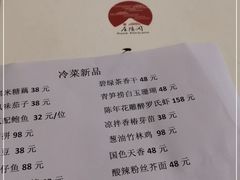 冷菜新品
米糖藕 38元
味茄子 38元
配鲍鱼 32元/位
拼 98元
豆 38元
仔鱼 88元
碧绿茶香干 48元
青笋捞白玉珊瑚 48元
陈年花雕醉罗氏虾 158元
凉拌香椿芽苗 38元
葱油竹林鸡 98元
国色天香 48元
酸辣粉丝芥面 48元